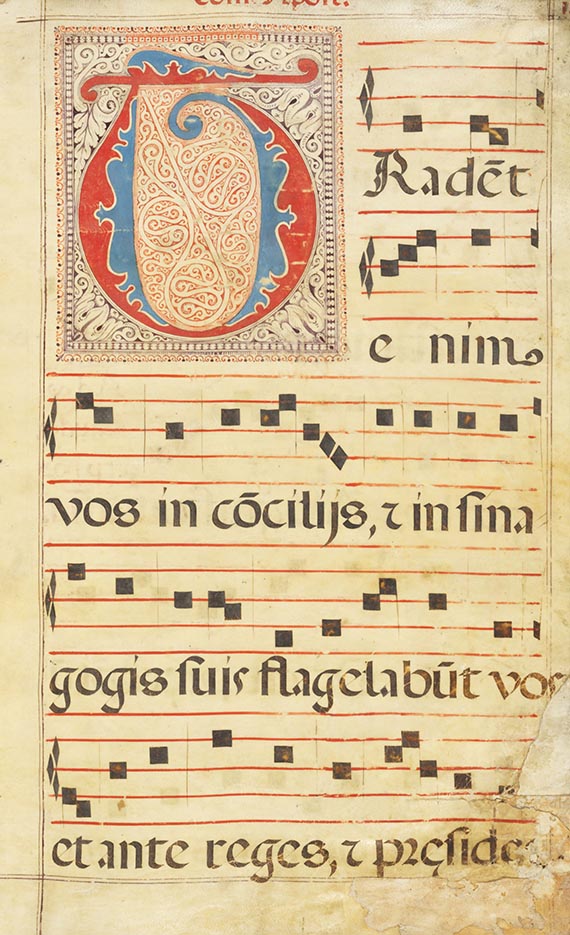 TRadēt
e nim
vos in cōcilijs, ⁊ in sina
gogis suis flagelabūt vos
et ante reges, ⁊ pręside